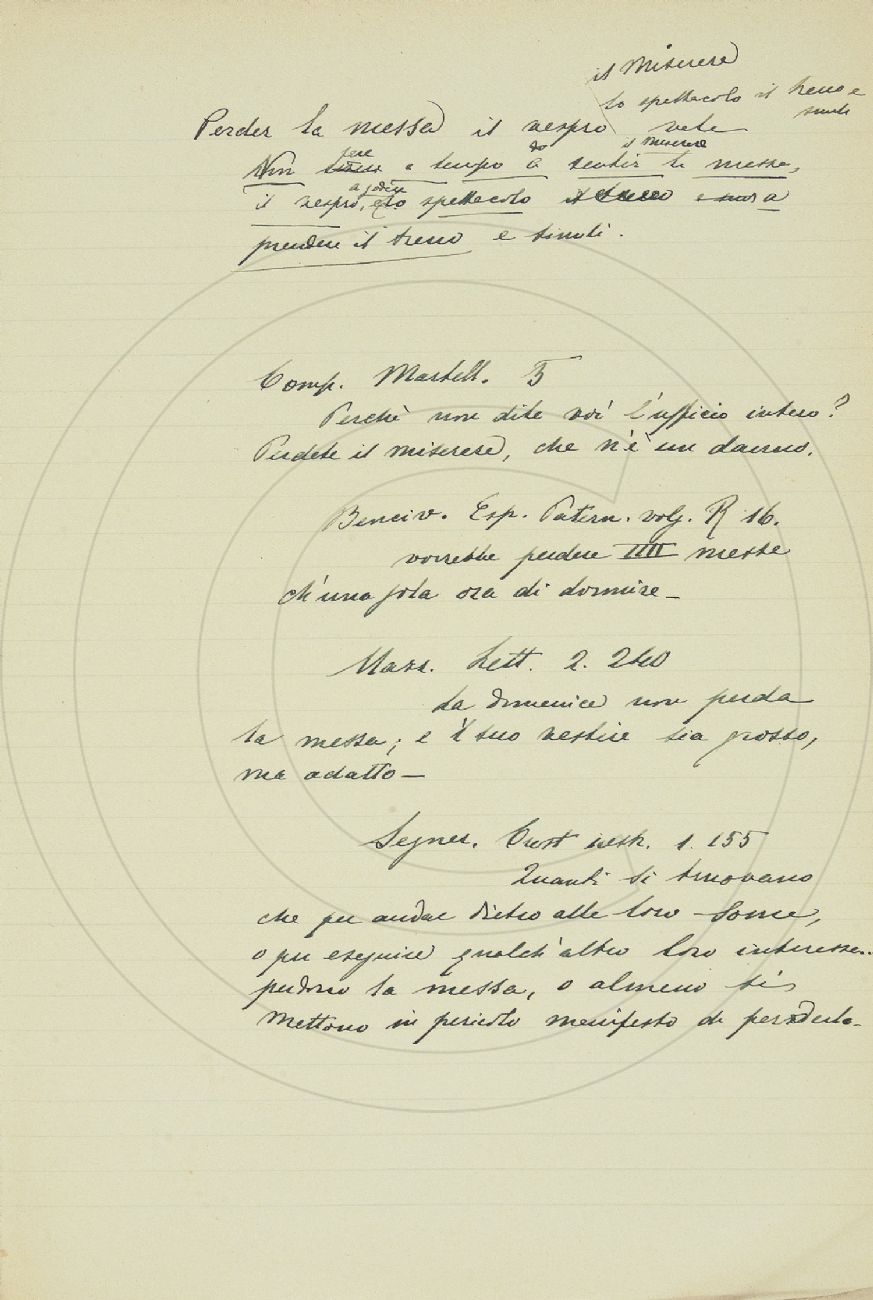 il Miserere
lo spettacolo il treno e
simili
Perder la messa il vespro vale
il miserere
Non essere a tempo a sentir la messa,
a godere
il vespro, o lo spettacolo il treno e simi a
prendere il treno e simili.
Comp. Mantell. 5
Perchè non dite voi l'ufficio intero?
Perdete il miserere, che n'è un danno.
Benciv. Esp. Patern. volg. R 16.
vorrebbe perdere IIII messe
ch'una sola ora di dormire_
Mazz. Lett. 2. 240
La domenica non perda
la messa; e 'l suo vestire sia grosso,
ma adatto—
Segner. Crist instr. 1. 155
Quanti si truovano
che per andar dietro alle loro some,
o per eseguire qualch'altro loro interesse..
perdono la messa, o almeno si
mettono in pericolo manifesto di perderla.